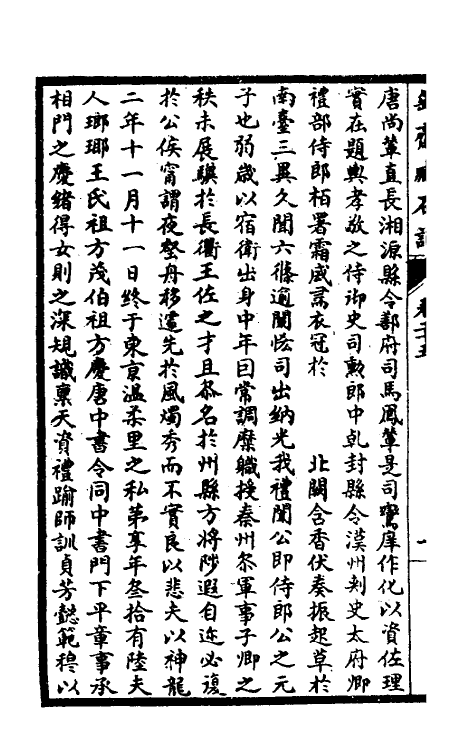 唐尚輦直長湘源縣令鄯府司馬鳳輦是司鸞庫作化以資佐理
實在題輿孝敬之侍御史司勲郎中乹封縣令漢州刺史太府卿
禮部侍郎栢署霜威蘭衣冠於 北闕含香伏奏振起草於
南臺三異久聞六條遹闡恡司出納光我禮闈公即侍郎公之元
子也弱歲以宿衛出身中年曰常調縻職授秦州叅軍事子卿之
秩未展驥於長衢王佐之才且叅名於州縣方將陟遐自迩必復
於公侯甯謂夜壑舟移遽先於風燭秀而不實良以悲夫以神龍
二年十一月十一日終于東京溫柔里之私第享年叁拾有陸夫
人瑯瑘王氏祖方茂伯祖方慶唐中書令同中書門下平章事承
相門之慶緒得女則之深規識稟天資禮踰師訓貞芳懿範穆以
卷二十五
一